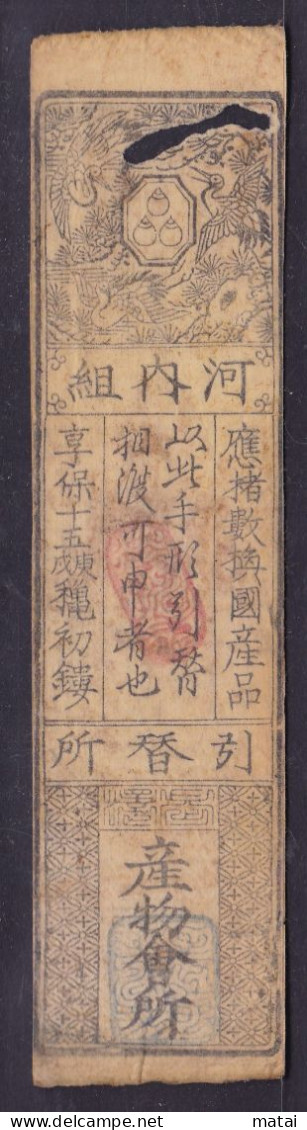 河内組
應楮數換國産品
以此手形引替
相渡可申者也
享保十五庚戌穐初鏤
引替所
産物會所
matai